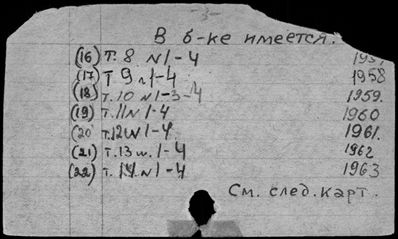 - 3 -
В б-ке имеется:
(16) т. 8 №1-4 1957
(17) т 9 №1-4 1958
(18) т. 10 №1-3-4 1959.
(19) т. 11 №1-4 1960
(20) т. 12 №1-4 1961.
(21) т. 13 №1-4 1962
(22) т. 14 №1-4 1963
См. след. карт.